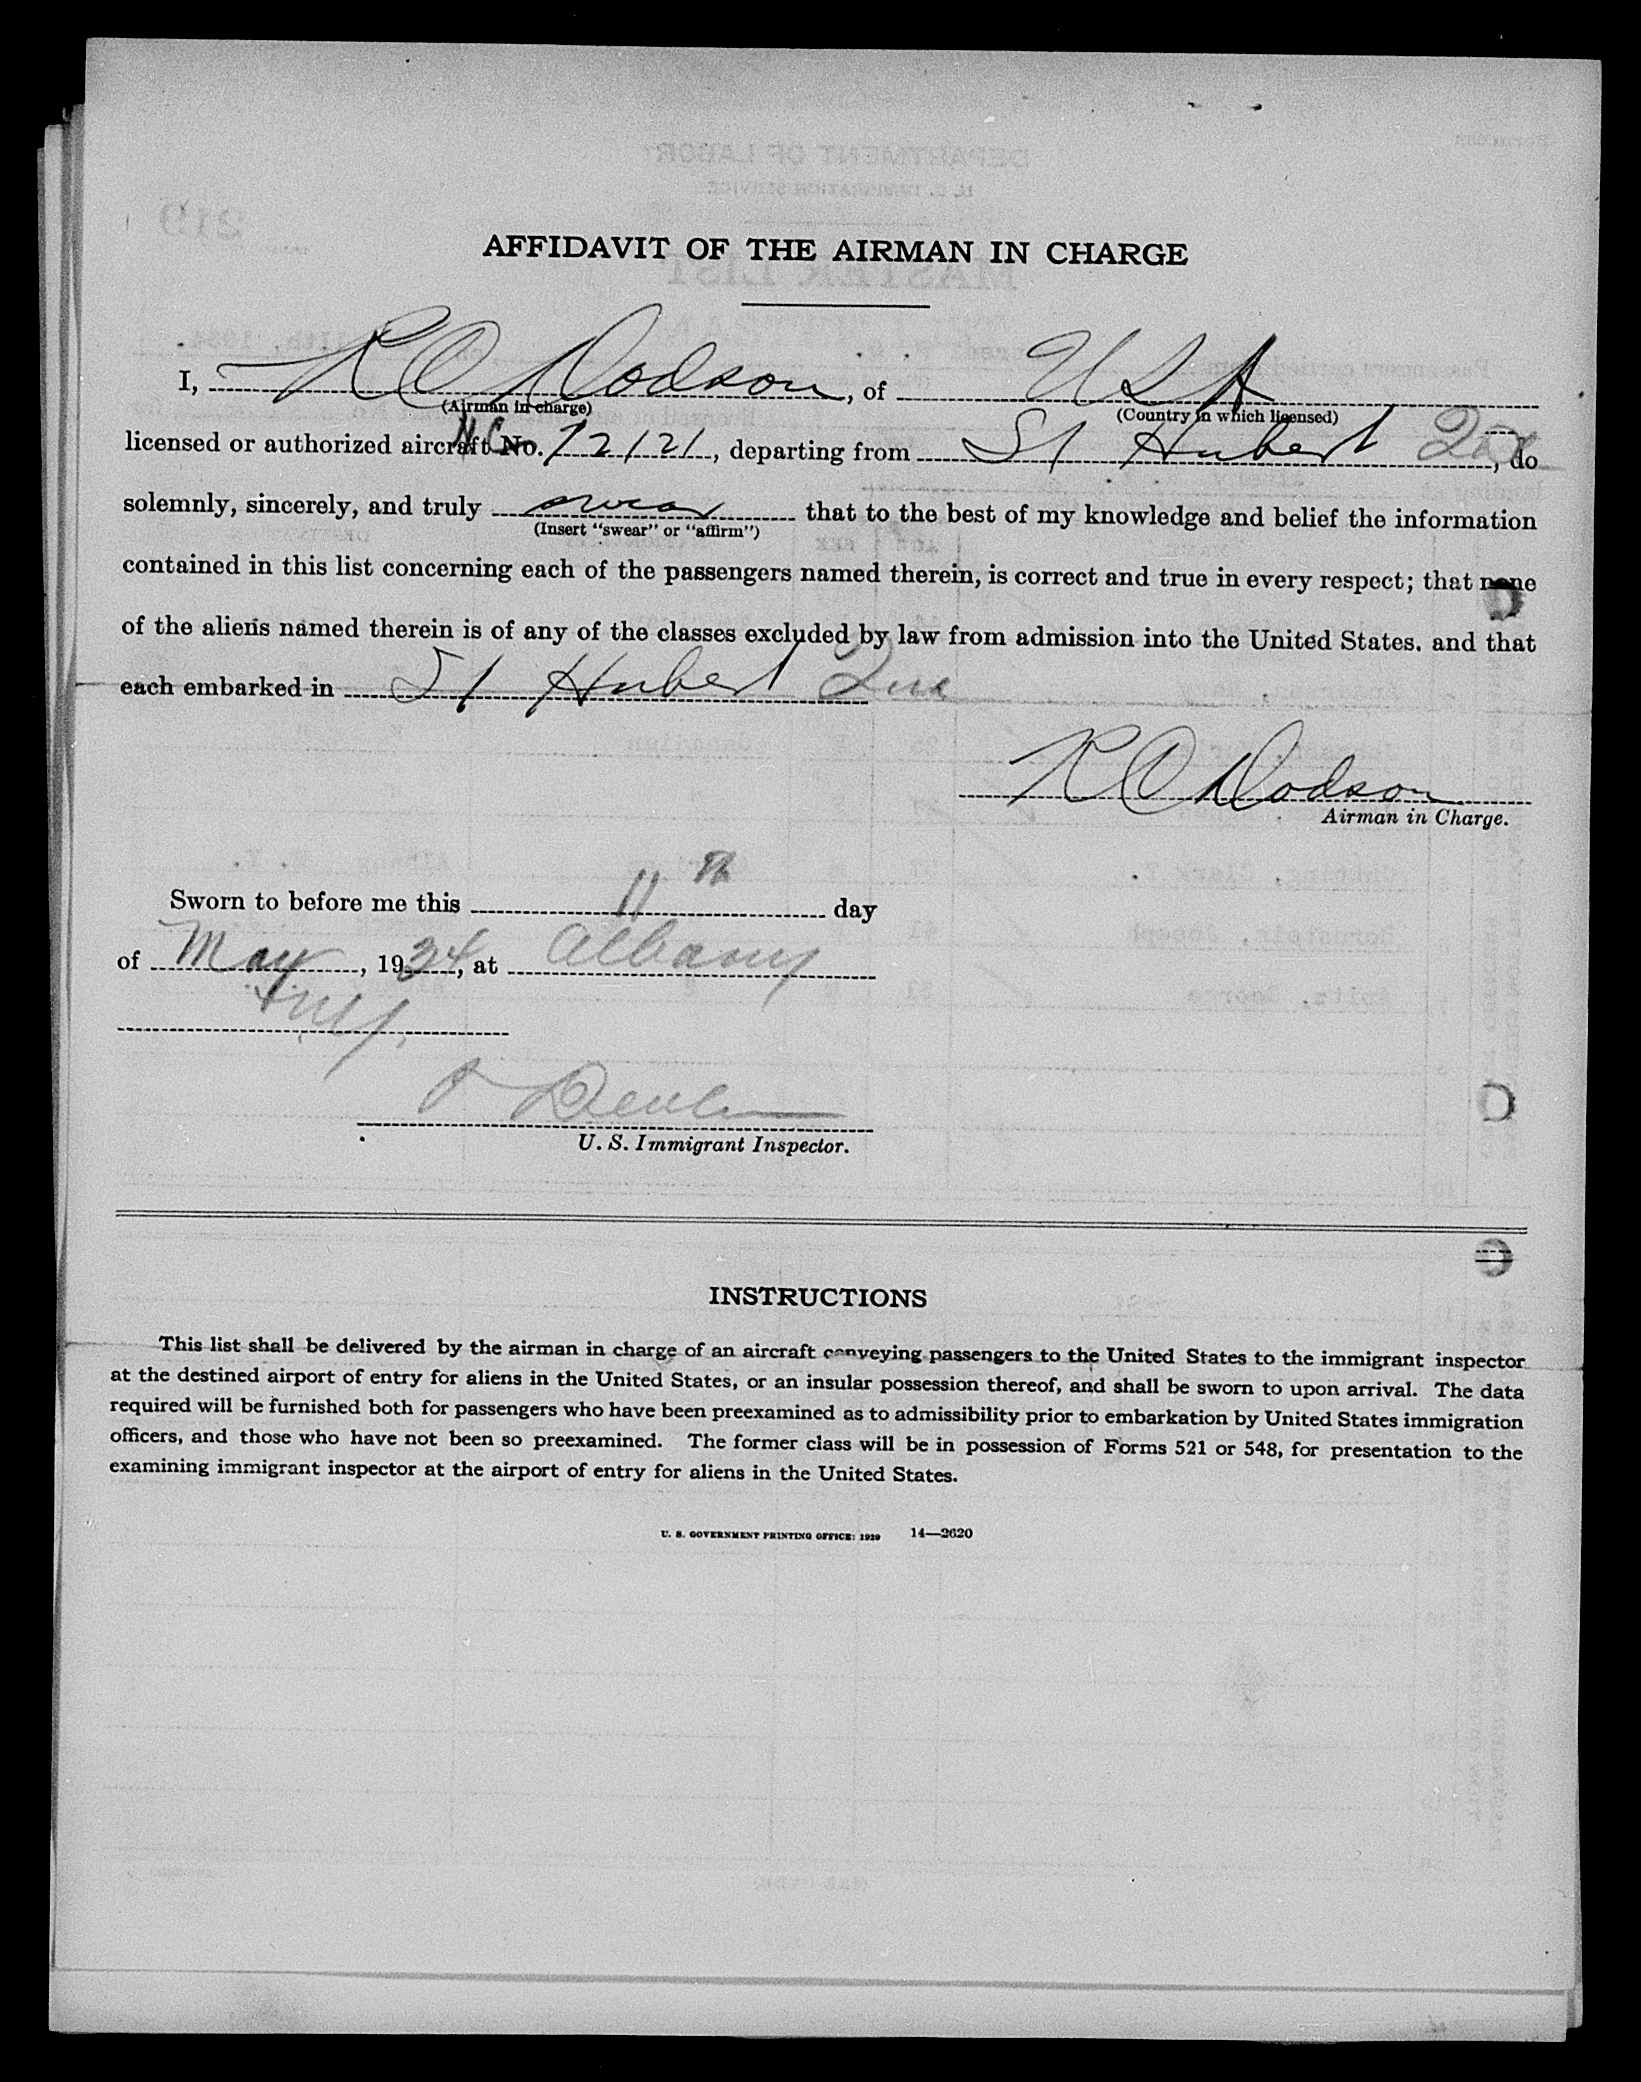 AFFIDAVIT OF THE AIRMAN IN CHARGE
I, R O Dodson, of USA
(Airman in charge) (Country in which licensed)
licensed or authorized aircraft NC No. 12121, departing from St Hubert Que, do
solemnly, sincerely, and truly swear that to the best of my knowledge and belief the information
(Insert "swear" or "affirm")
contained in this list concerning each of the passengers named therein, is correct and true in every respect; that none
of the aliens named therein is of any of the classes excluded by law from admission into the United States, and that
each embarked in St Hubert Que
R O Dodson
Airman in Charge.
Sworn to before me this 11th day
of May, 1934, at Albany
N.Y.
U. S. Immigrant Inspector.
INSTRUCTIONS
This list shall be delivered by the airman in charge of an aircraft conveying passengers to the United States to the immigrant inspector
at the destined airport of entry for aliens in the United States, or an insular possession thereof, and shall be sworn to upon arrival. The data
required will be furnished both for passengers who have been preexamined as to admissibility prior to embarkation by United States immigration
officers, and those who have not been so preexamined. The former class will be in possession of Forms 521 or 548, for presentation to the
examining immigrant inspector at the airport of entry for aliens in the United States.
U. S. GOVERNMENT PRINTING OFFICE: 1929 14—2620